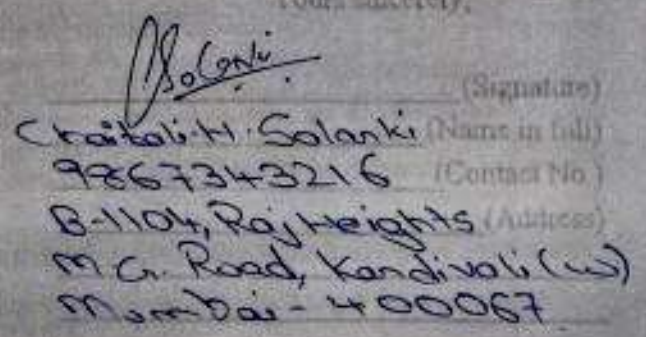 Yours sincerely,
Solanki (Signature)
Chaitali. H. Solanki (Name in full)
9867343216 (Contact No.)
B-1104, Raj Heights (Address)
M.G. Road, Kandivali (W)
Mumbai - 400067